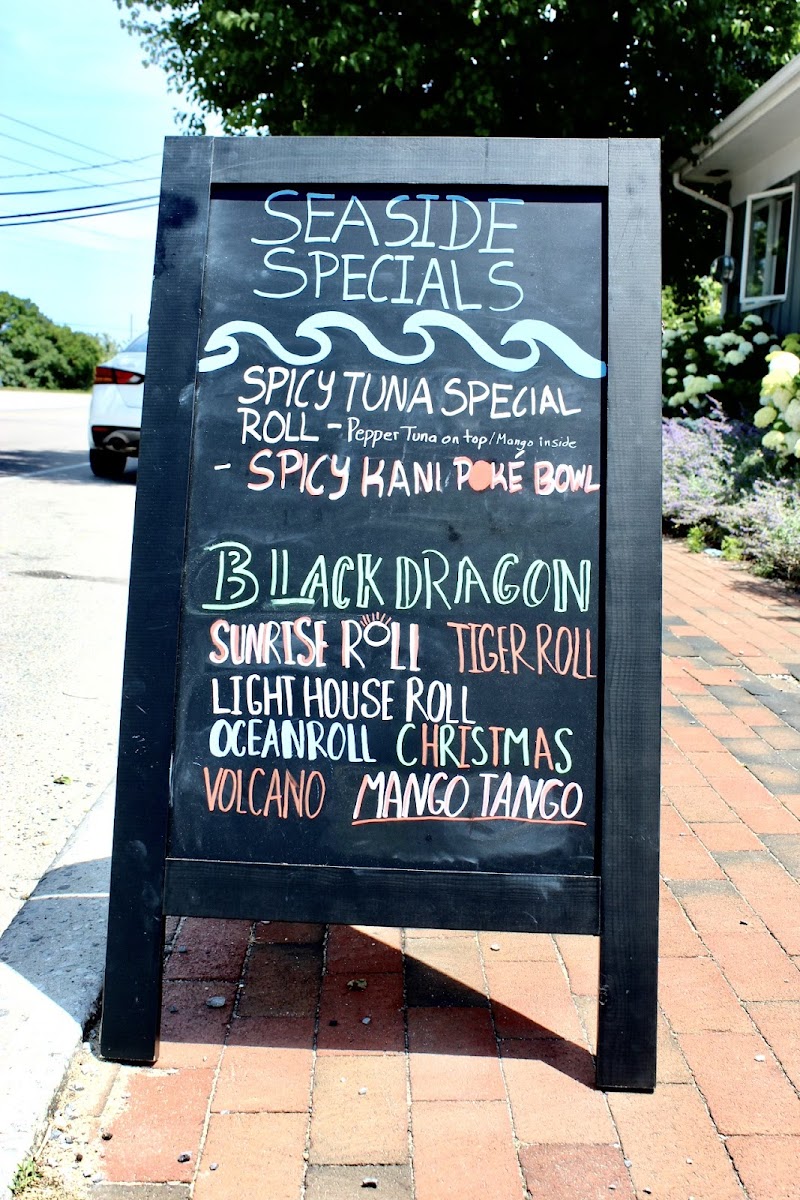 SEASIDE
SPECIALS
SPICY TUNA SPECIAL
ROLL - Pepper Tuna on top/Mango inside
- SPICY KANI POKÉ BOWL
BLACK DRAGON
SUNRISE ROLL TIGER ROLL
LIGHT HOUSE ROLL
OCEAN ROLL CHRISTMAS
VOLCANO MANGO TANGO